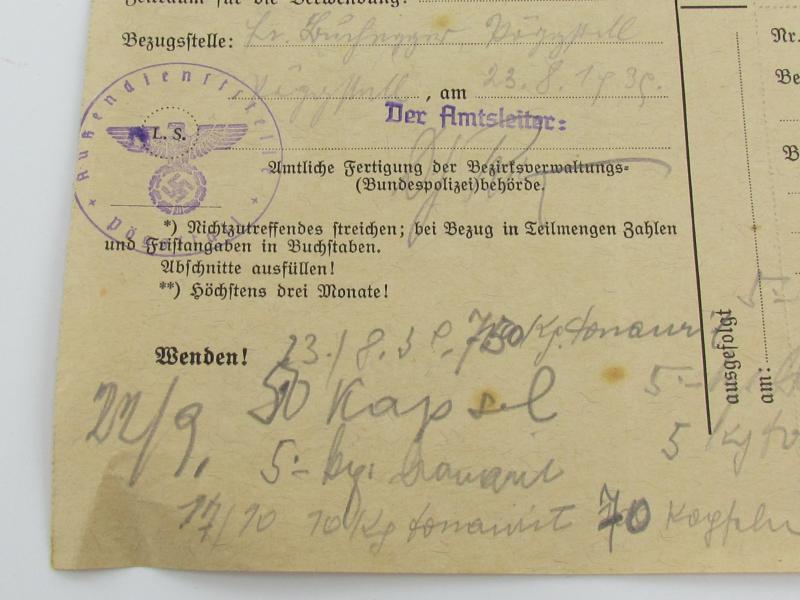 Zeitraum für die Verwendung:
Bezugsstelle: Fr. Buchegger, Pöggstall
Pöggstall, am 23. 8. 1939.
Außendienststelle
L. S.
Der Amtsleiter:
Amtliche Fertigung der Bezirksverwaltungs-
(Bundespolizei)behörde.
*) Nichtzutreffendes streichen; bei Bezug in Teilmengen Zahlen
und Fristangaben in Buchstaben.
Abschnitte ausfüllen!
**) Höchstens drei Monate!
Wenden!
23./8. 39. Kg. donarit
22/9. 50 Kapsel
5.- kg. donarit
17/10 10 Kg donarit 70 Kapseln
Nr.
Be
B
ausgefolgt
am:
5
5.-
5 Kg